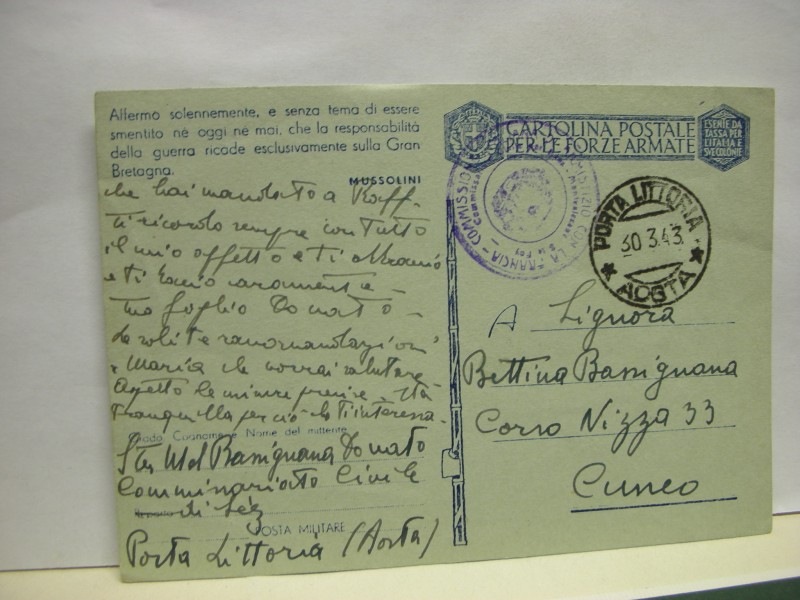 Affermo solennemente, e senza tema di essere
smentito nè oggi nè mai, che la responsabilità
della guerra ricade esclusivamente sulla Gran
Bretagna.
MUSSOLINI
che hai mandato a
ti ricordo sempre con tutto
il mio affetto e ti abbraccio
e ti bacio caramente
tuo foglio Donato
solite raccomandazioni
Maria che vorrai salutare
Aspetto le misure precise. Stà
tranquilla perciò che ti interessa.
Grado, Cognome e Nome del mittente
Bassignana Donato
Commissariato Civile
Reparto di Séez
POSTA MILITARE
Porta Littoria (Aosta)
CARTOLINA POSTALE
PER LE FORZE ARMATE
ESENTE DA
TASSA PER
L'ITALIA E
SUE COLONIE
COMMISSIONE ARMISTIZIO CON LA FRANCIA
PORTA LITTORIA
30.3.43
AOSTA
A Signora
Bettina Bassignana
Corso Nizza 33
Cuneo